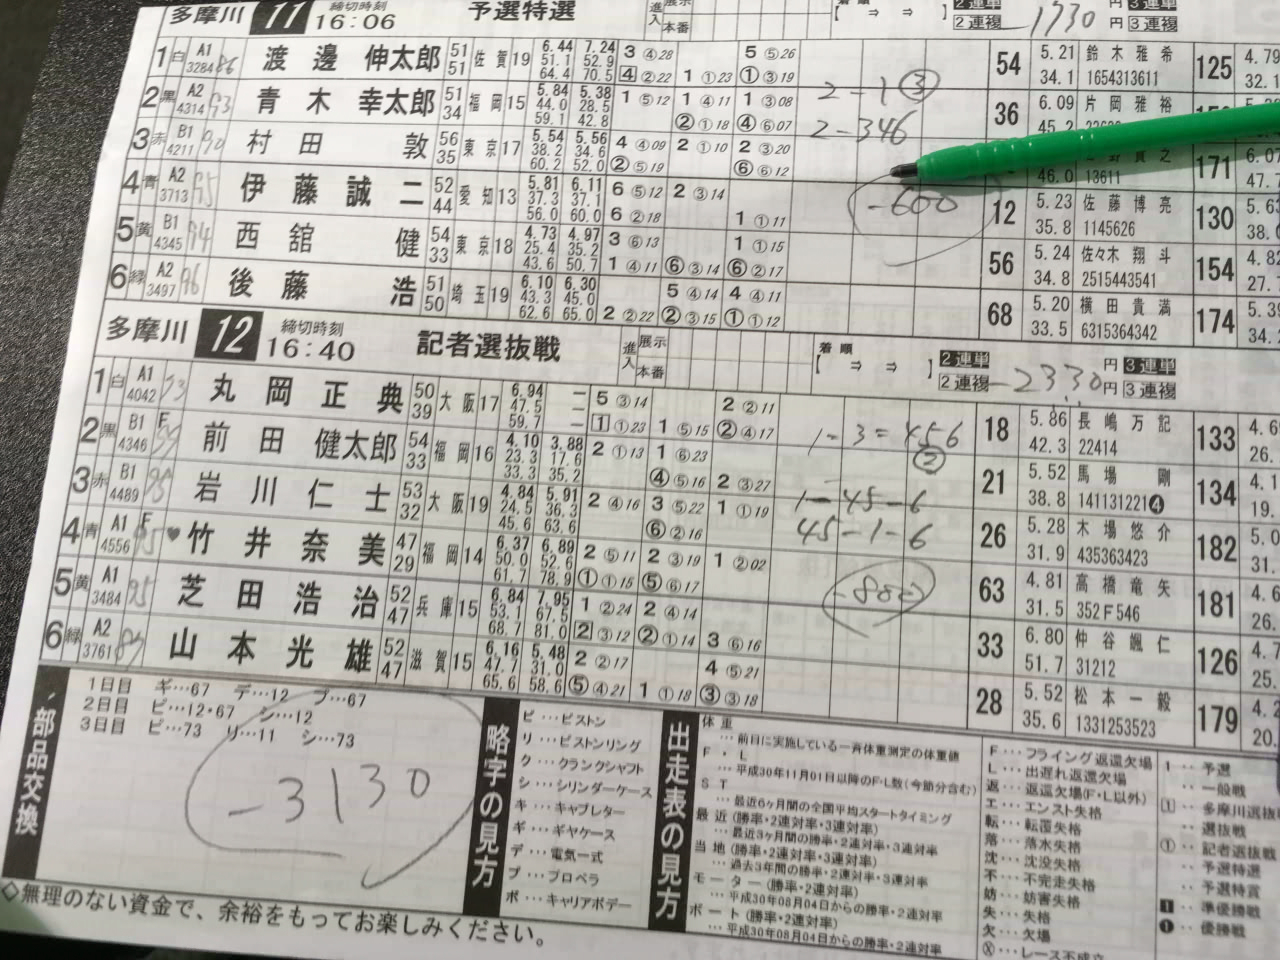 多摩川 11 締切時刻 16:06 予選特選 進入 展示 本番 着順 [ ⇒ ⇒ ] 2連単 2連複 1730 円 3連単 円 3連複
1 白 A1 3284 86 渡邊 伸太郎 51 51 佐賀 19 6.44 51.1 64.4 7.24 52.9 70.5 3 ④28 4 ②22 1 ①23 5 ⑤26 ① ③19 54 5.21 34.1 鈴木雅希 1654313611 125 4.79 32.1
2 黒 A2 4314 93 青木 幸太郎 51 34 福岡 15 5.84 44.0 59.1 5.38 28.5 42.8 1 ⑤12 1 ④11 ② ①18 1 ③08 ④ ⑥07 2-1③ 36 6.09 45.2 片岡雅裕
3 赤 B1 4211 90 村田 敦 56 35 東京 17 5.54 38.2 60.2 5.56 34.6 52.0 4 ④09 ② ⑤19 2 ①10 2 ③20 ⑥ ⑥12 2-346 46.0 13611 171 6.07 47.7
4 青 A2 3713 95 伊藤誠二 52 44 愛知 13 5.81 37.3 56.0 6.11 37.1 60.0 6 ⑤12 6 ②18 2 ③14 1 ①11 -600 12 5.23 35.8 佐藤博亮 1145626 130
5 黄 B1 4345 94 西舘 健 54 33 東京 18 4.73 25.4 43.6 4.97 35.2 50.7 3 ⑥13 1 ④11 ⑥ ③14 1 ①15 ⑥ ②17 56 5.24 34.8 佐々木翔斗 2515443541 154 4.82
6 緑 A2 3497 96 後藤 浩 51 50 埼玉 19 6.10 43.3 62.6 6.30 45.0 65.0 2 ②22 5 ④14 ② ③15 4 ④11 ① ①12 68 5.20 33.5 横田貴満 6315364342 174 5.39 34.2
多摩川 12 締切時刻 16:40 記者選抜戦 進入 展示 本番 着順 [ ⇒ ⇒ ] 2連単 2連複 -2330 円 3連単 円 3連複
1 白 A1 4042 93 丸岡正典 50 39 大阪 17 6.94 47.5 59.7 — — — 5 ③14 1 ①23 1 ⑤15 2 ②11 ② ④17 18 5.86 42.3 長嶋万記 22414 133
2 黒 B1 F 4346 前田 健太郎 54 33 福岡 16 4.10 23.3 33.3 3.88 17.6 35.2 2 ①13 1 ⑥23 ④ ⑤16 2 ③27 1-3=456 ② 21 5.52 38.8 馬場 剛 141131221❹ 134
3 赤 B1 4489 岩川仁士 53 32 大阪 19 4.84 24.5 45.6 5.91 36.3 63.6 2 ④16 3 ⑤22 ⑥ ②16 1 ①19 1-45-6 26 5.28 31.9 木場悠介 435363423 182
4 青 A1 F 4556 95 ♥竹井奈美 47 29 福岡 14 6.37 50.0 61.7 6.89 52.6 78.9 2 ⑤11 ① ①15 2 ③19 ⑤ ⑥17 1 ②02 45-1-6 63 4.81 31.5 高橋竜矢 352F546 181
5 黄 A1 3484 95 芝田浩治 52 47 兵庫 15 6.84 53.1 68.7 7.95 67.5 81.0 1 ②24 2 ③12 2 ④14 ② ①14 3 ⑥16 -800 33 6.80 51.7 仲谷颯仁 31212 126
6 緑 A2 3761 山本光雄 52 47 滋賀 15 6.16 47.7 65.6 5.48 31.0 58.6 2 ②17 ⑤ ④21 1 ①18 4 ⑤21 ③ ③18 28 5.52 35.6 松本一毅 1331253523 179
部品交換
1日目 ギ…67 デ…12 プ…67
2日目 ピ…12・67 シ…12
3日目 ピ…73 リ…11 シ…73
-3130
略字の見方
ピ…ピストン
リ…ピストンリング
ク…クランクシャフト
シ…シリンダーケース
キ…キャブレター
ギ…ギヤケース
デ…電気一式
プ…プロペラ
ボ…キャリアボデー
出走表の見方
体重
…前日に実施している一斉体重測定の体重値
F・L
…平成30年11月01日以降のF・L数(今節分含む)
ST
…最近6ヶ月間の全国平均スタートタイミング
最近(勝率・2連対率・3連対率)
…最近3ヶ月間の勝率・2連対率・3連対率
当地(勝率・2連対率・3連対率)
…過去3年間の勝率・2連対率・3連対率
モーター(勝率・2連対率)
…平成30年08月04日からの勝率・2連対率
ボート(勝率・2連対率)
…平成30年08月04日からの勝率・2連対率
F…フライング返還欠場
L…出遅れ返還欠場
返…返還欠場(F・L以外)
エ…エンスト失格
転…転覆失格
落…落水失格
沈…沈没失格
不…不完走失格
妨…妨害失格
失…失格
欠…欠場
Ⓧ…レース不成立
1‥予選
‥一般戦
1‥多摩川選抜
‥選抜戦
①‥記者選抜戦
‥予選特選
‥予選特賞
1‥準優勝戦
❶‥優勝戦
◇無理のない資金で、余裕をもってお楽しみください。